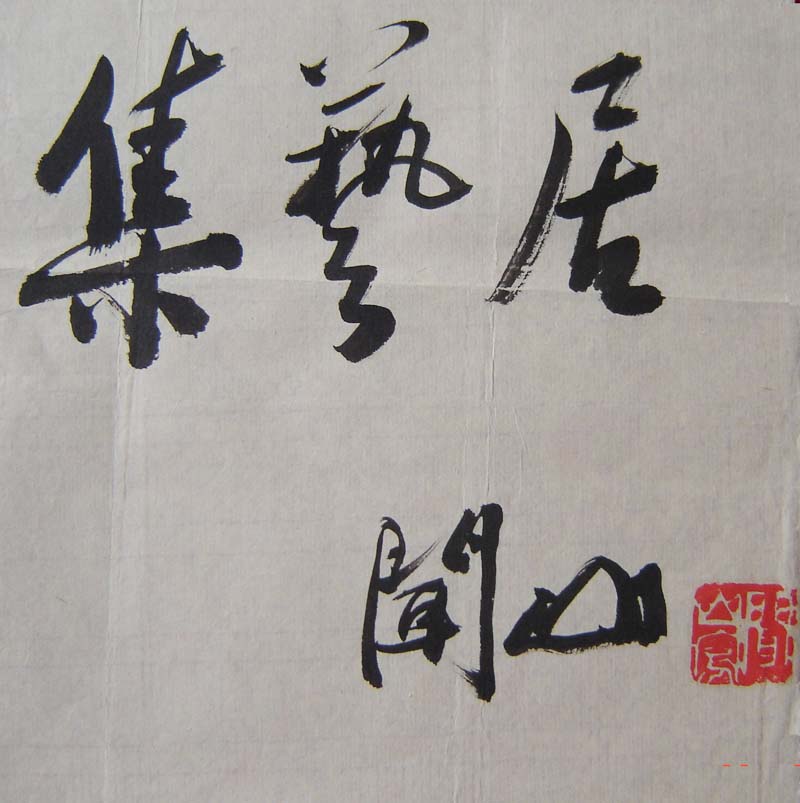 集藝居
聞山